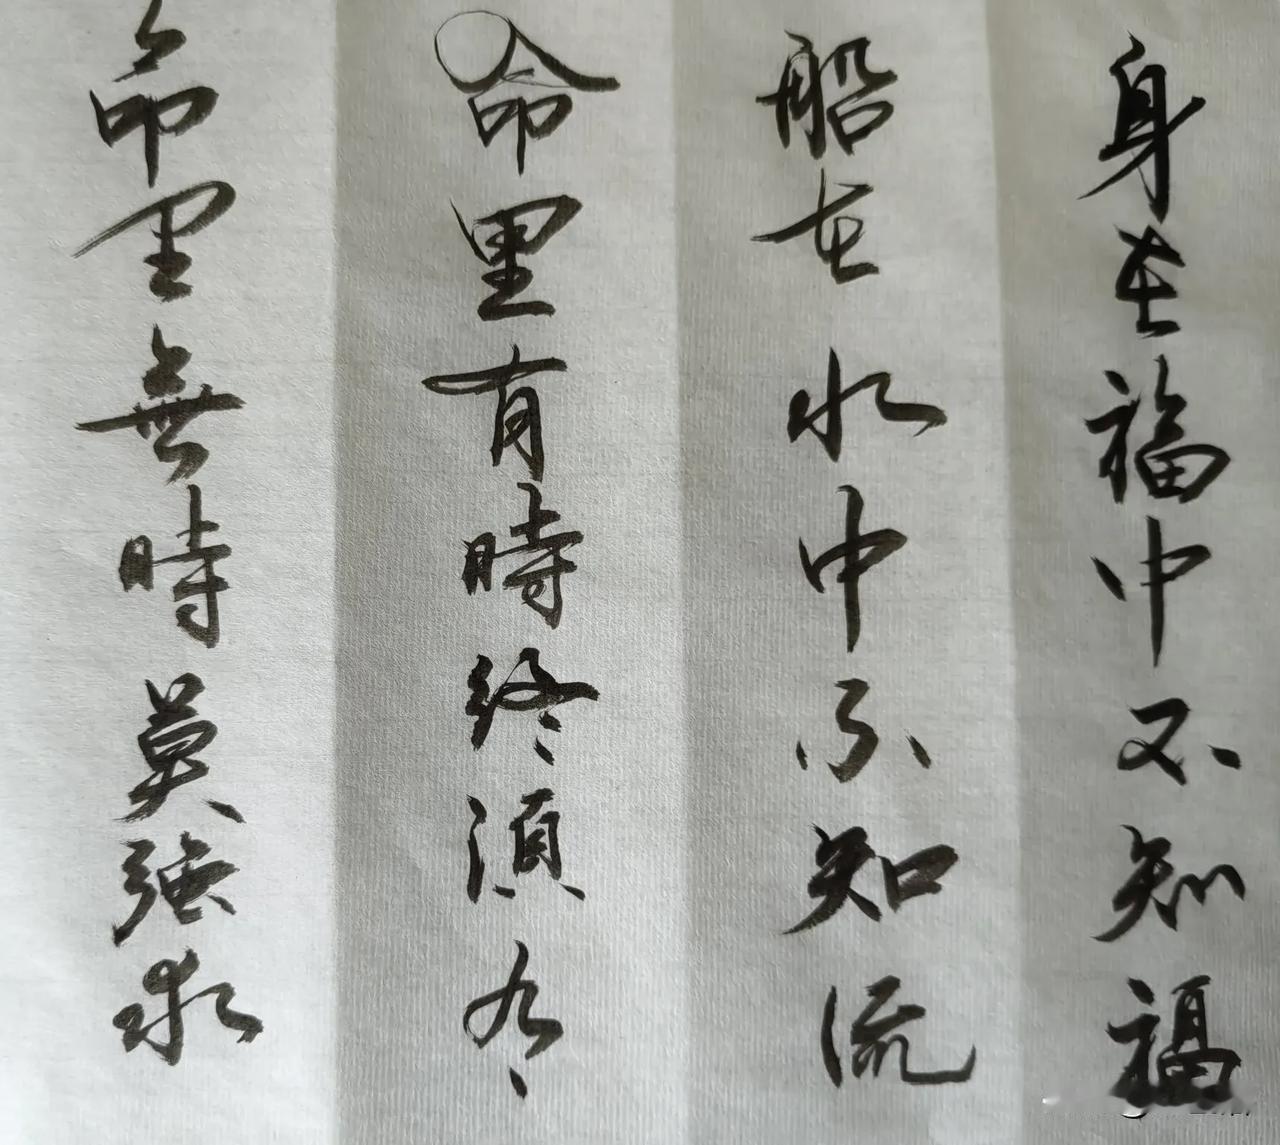 身在福中不知福
船在水中不知流
命里有時終須有
命里無時莫強求